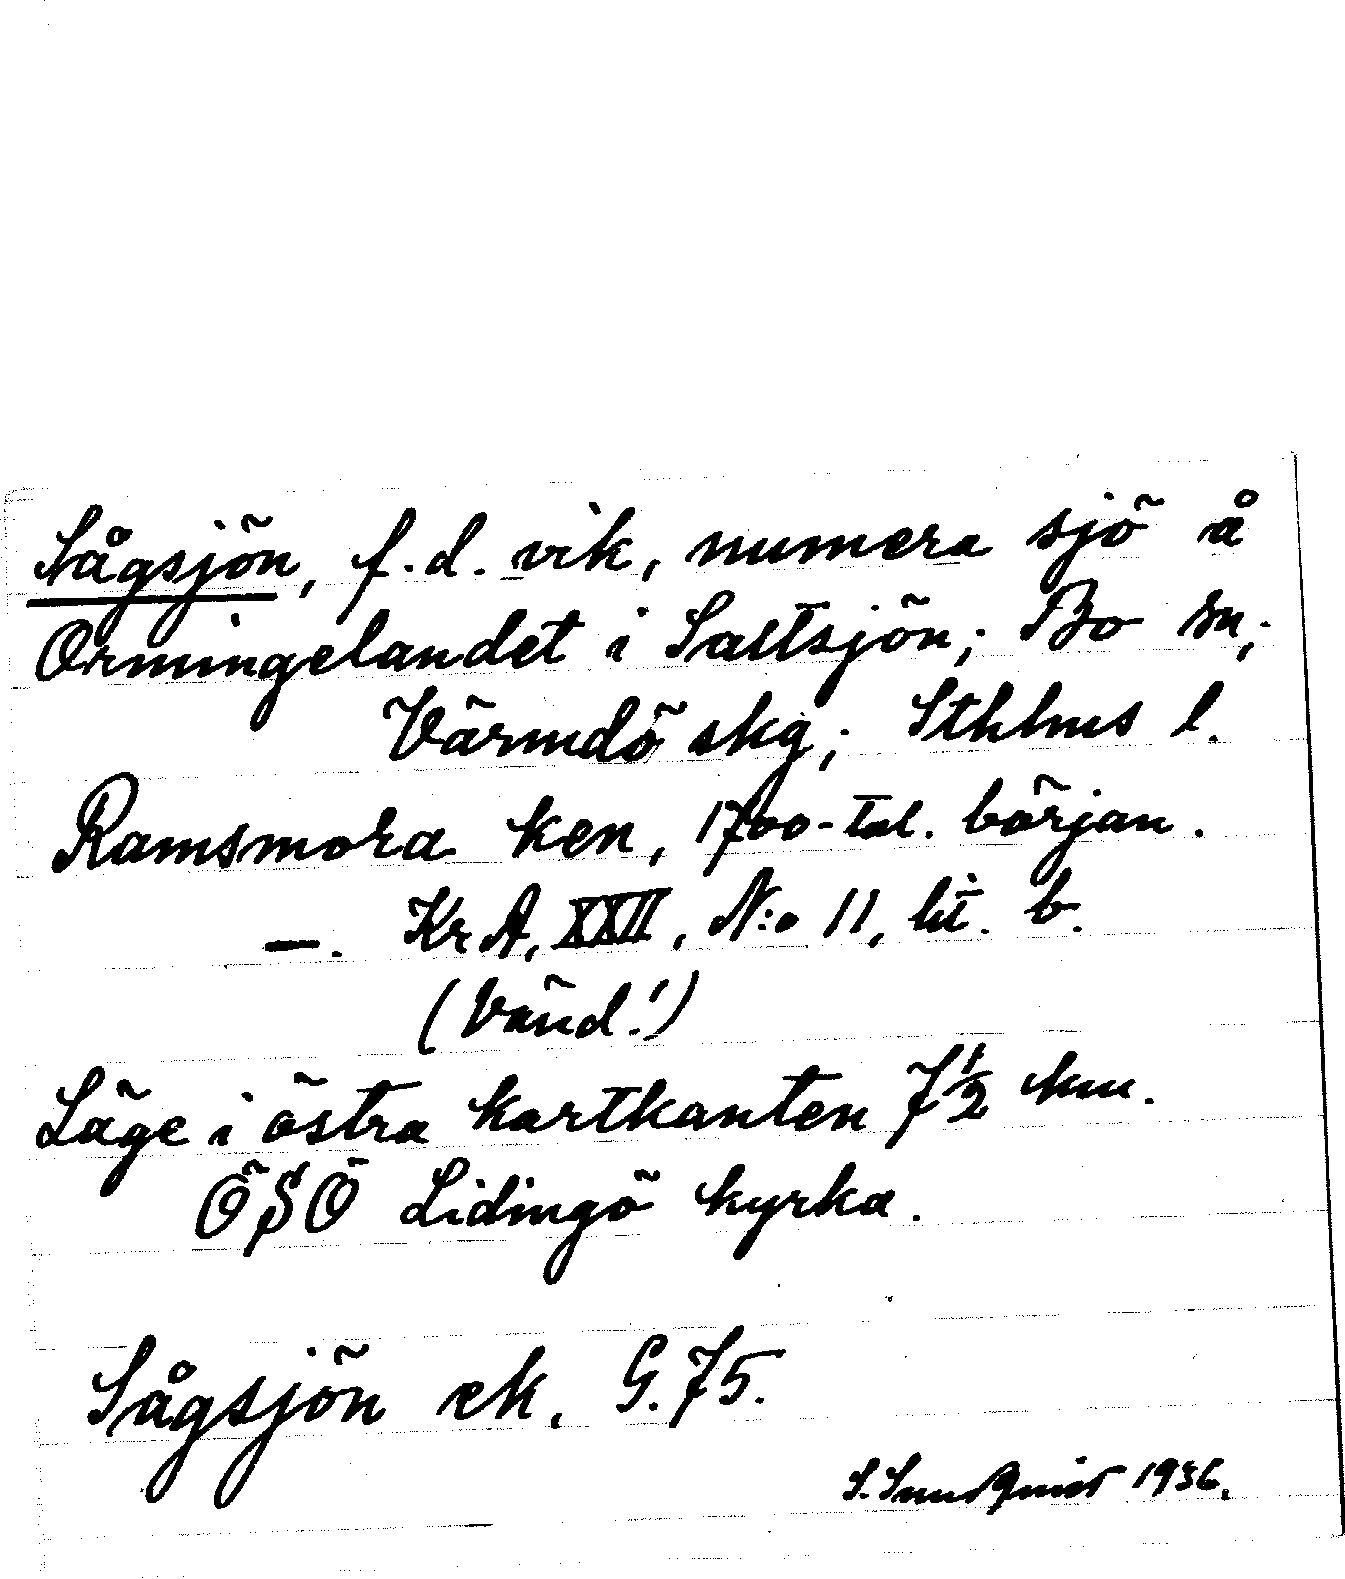 Sågsjön, f.d. vik, numera sjö å
Ormingelandet i Saltsjön; Bo sn;
Värmdö skg; Sthlms l.
Ramsmora ken, 1700-tal. början.
—. Kr A, XXII, N:o 11, lit. b.
(Vänd!)
Läge i östra kartkanten 7½ km.
ÖSÖ Lidingö kyrka.
Sågsjön ek. G.75.
S. Sundquist 1936.